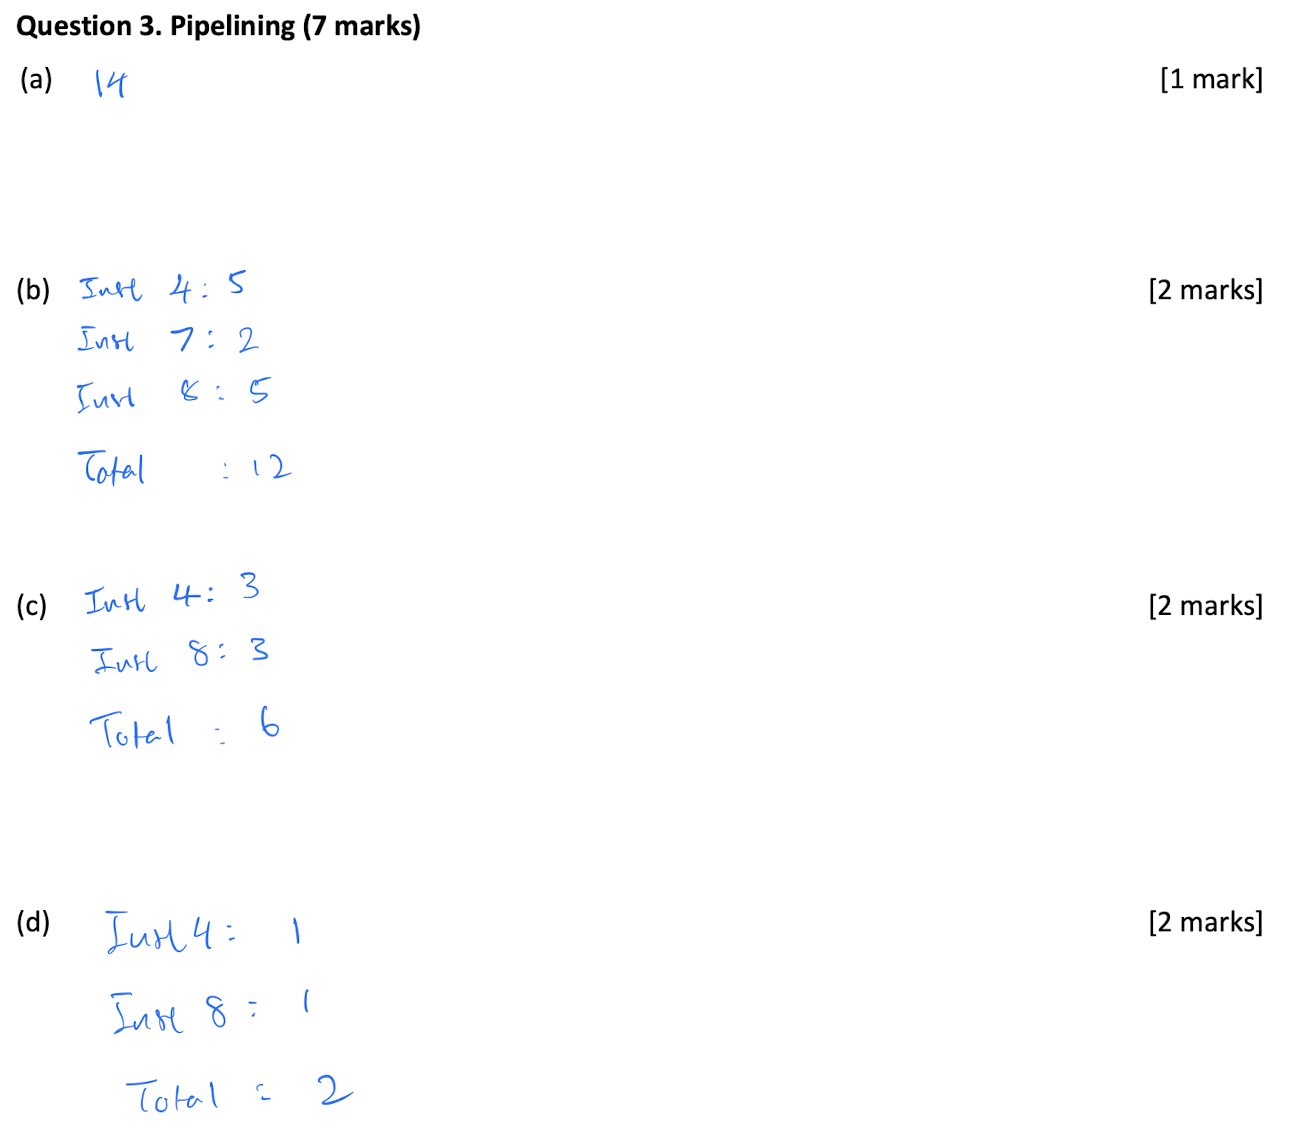 Question 3. Pipelining (7 marks)
(a) 14 [1 mark]
(b) Inst 4: 5 [2 marks]
Inst 7: 2
Inst 8: 5
Total : 12
(c) Inst 4: 3 [2 marks]
Inst 8: 3
Total : 6
(d) Inst 4: 1 [2 marks]
Inst 8: 1
Total : 2